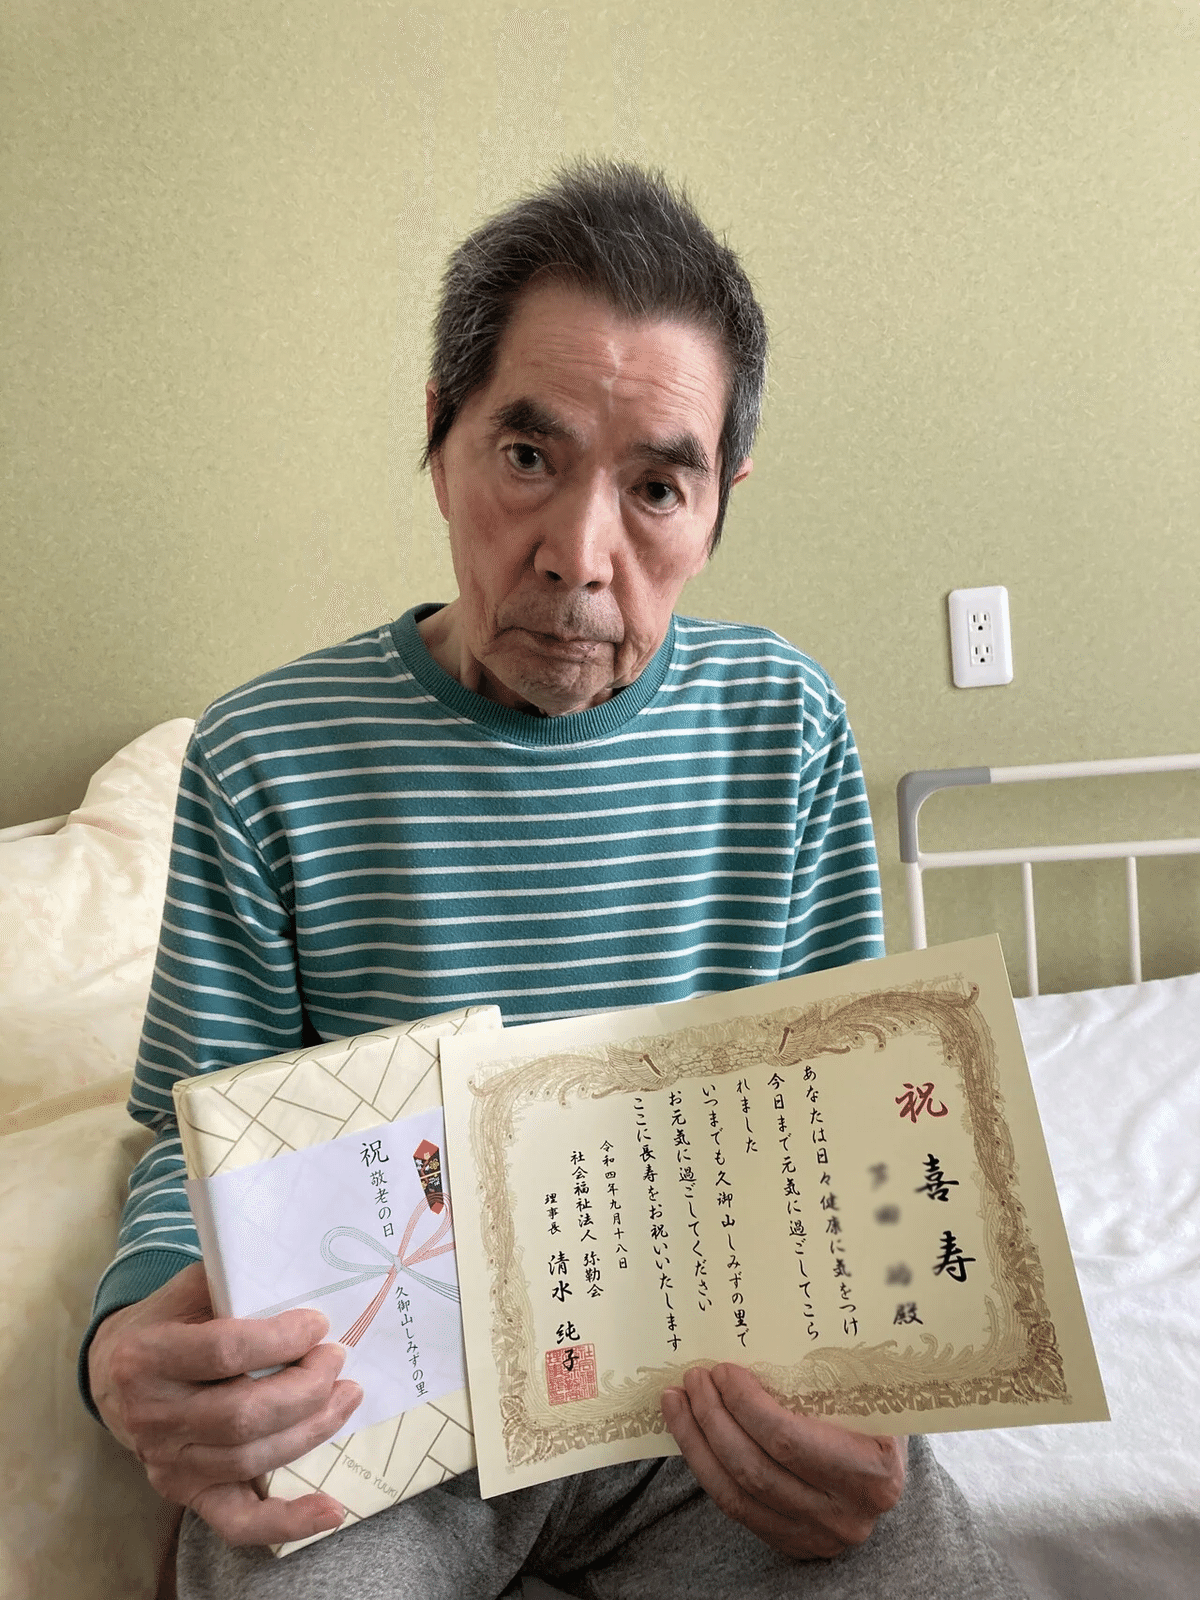 祝 敬老の日
久御山しみずの里
TOKYO YUUKI
祝 喜寿
殿
あなたは日々健康に気をつけ
今日まで元気に過ごしてこら
れました
いつまでも久御山しみずの里で
お元気に過ごしてください
ここに長寿をお祝いいたします
令和四年九月十八日
社会福祉法人 弥勒会
理事長 清水 純子